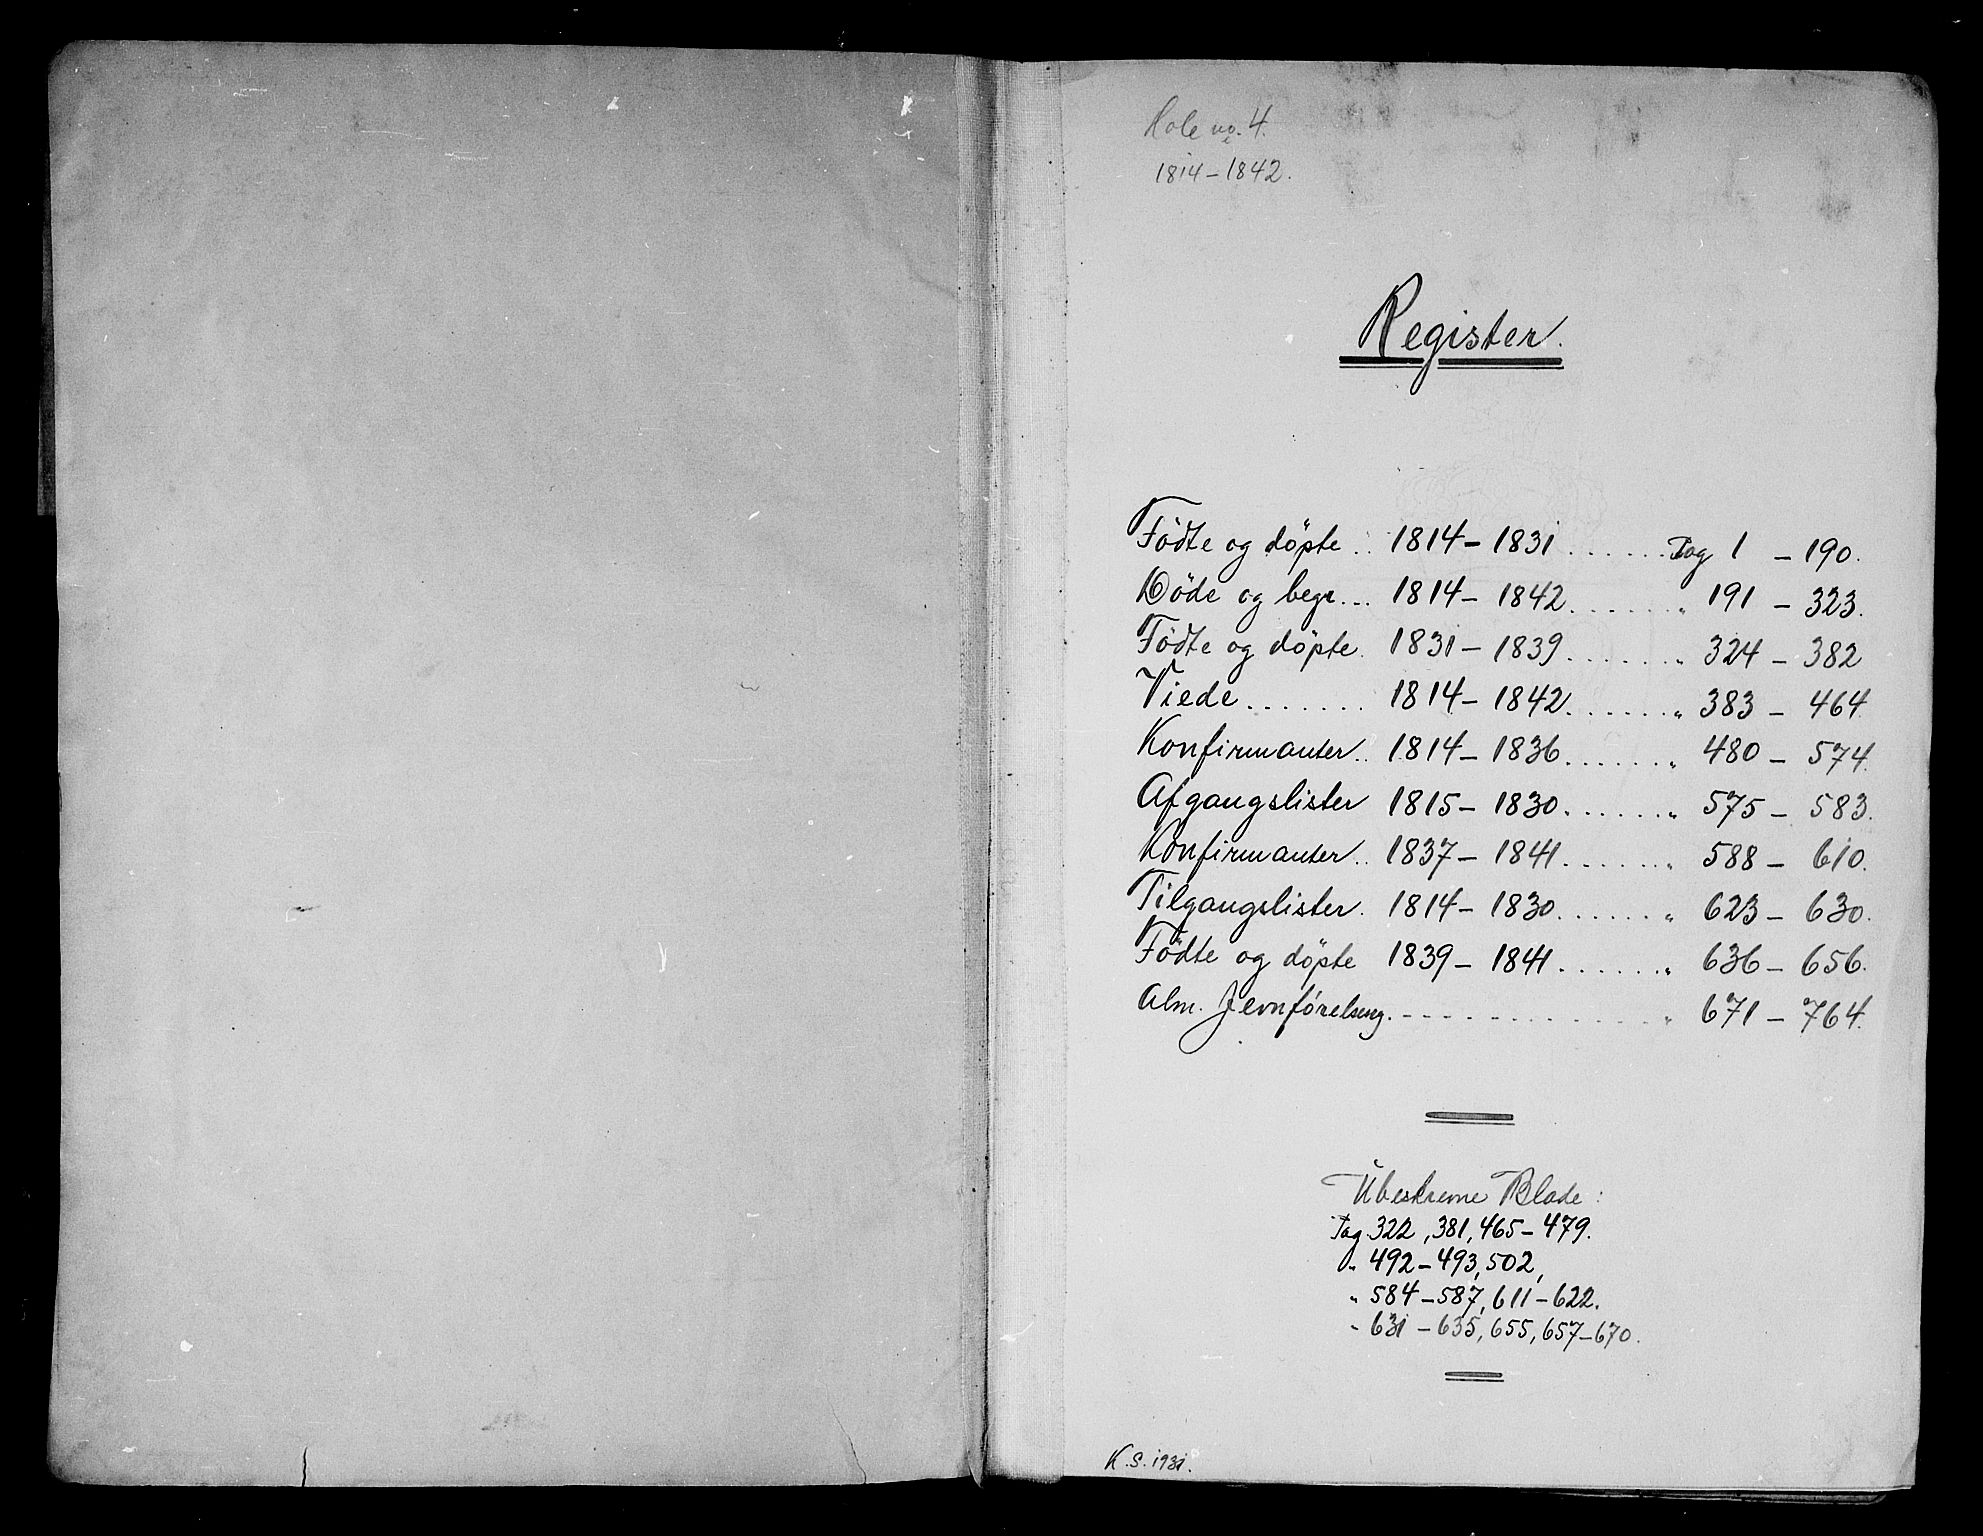 Hole no. 4.
1814-1842.
Register.
Födte og döpte .. 1814 - 1831 ....... Pag 1 - 190.
Döde og begr... 1814 - 1842. ...... „ 191 - 323.
Födte og döpte. 1831 - 1839. ...... „ 324 - 382
Viede ....... 1814 - 1842. ...... „ 383 - 464.
Konfirmanter .. 1814 - 1836. ...... „ 480 - 574.
Afgangslister 1815 - 1830. ...... „ 575 - 583.
Konfirmanter .. 1837 - 1841. ...... „ 588 - 610.
Tilgangslister. 1814 - 1830. ...... „ 623 - 630.
Födte og döpte 1839 - 1841. ...... „ 636 - 656.
Alm. Jevnförelsesreg. ............ „ 671 - 764.
Ubeskrevne Blade:
Pag. 322, 381, 465 - 479.
„ 492 - 493, 502,
„ 584 - 587, 611 - 622.
„ 631 - 635, 655, 657 - 670.
K.S. 1931.